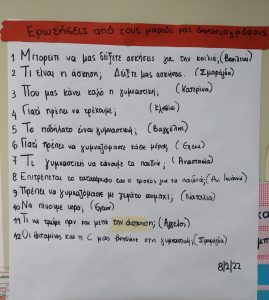 Ερωτήσεις από τους μικρούς μας δημοσιογράφους
1 Μπορείτε να μας δείξετε ασκήσεις για την κοιλιά; (Βασιλική)
2 Τι είναι η άσκηση; Δείξτε μας ασκήσεις. (Σμαράγδα)
3 Που μας κάνει καλό η γυμναστική; (Κατερίνα)
4 Γιατί πρέπει να τρέχουμε; (Κλαδιά)
5 Το ποδήλατο είναι γυμναστική; (Βαγγέλης)
6 Γιατί πρέπει να γυμναζόμαστε κάθε μέρα; (Έλενα)
7 Τι γυμναστική να κάνουμε τα παιδιά; (Αναστασία)
8 Επιτρέπεται το και ο για τα παιδιά; (Αν. Ιωάννα)
9 Πρέπει να γυμναζόμαστε με γεμάτο στομάχι; (Ναταλία)
10 Να πίνουμε νερό; (Έλενα)
11 Τι να τρώμε πριν και μετά την άσκηση; (Άγγελος)
12 Οι βιταμίνες και η C μας βοηθάνε στη γυμναστική; (Σμαράγδα)
8/2/22